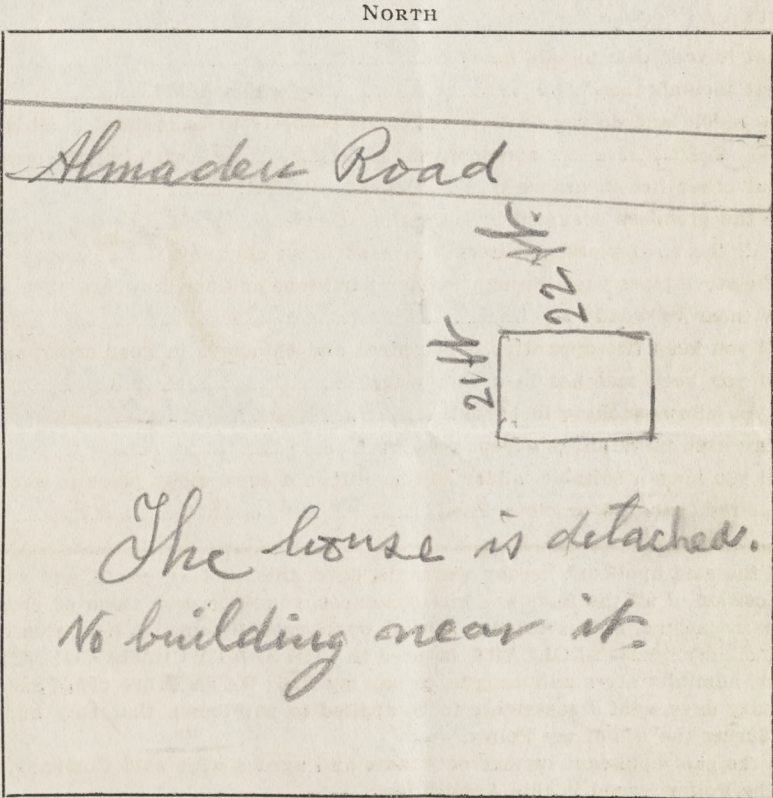 NORTH
Almaden Road
22 ft.
21 ft
The house is detached.
No building near it.